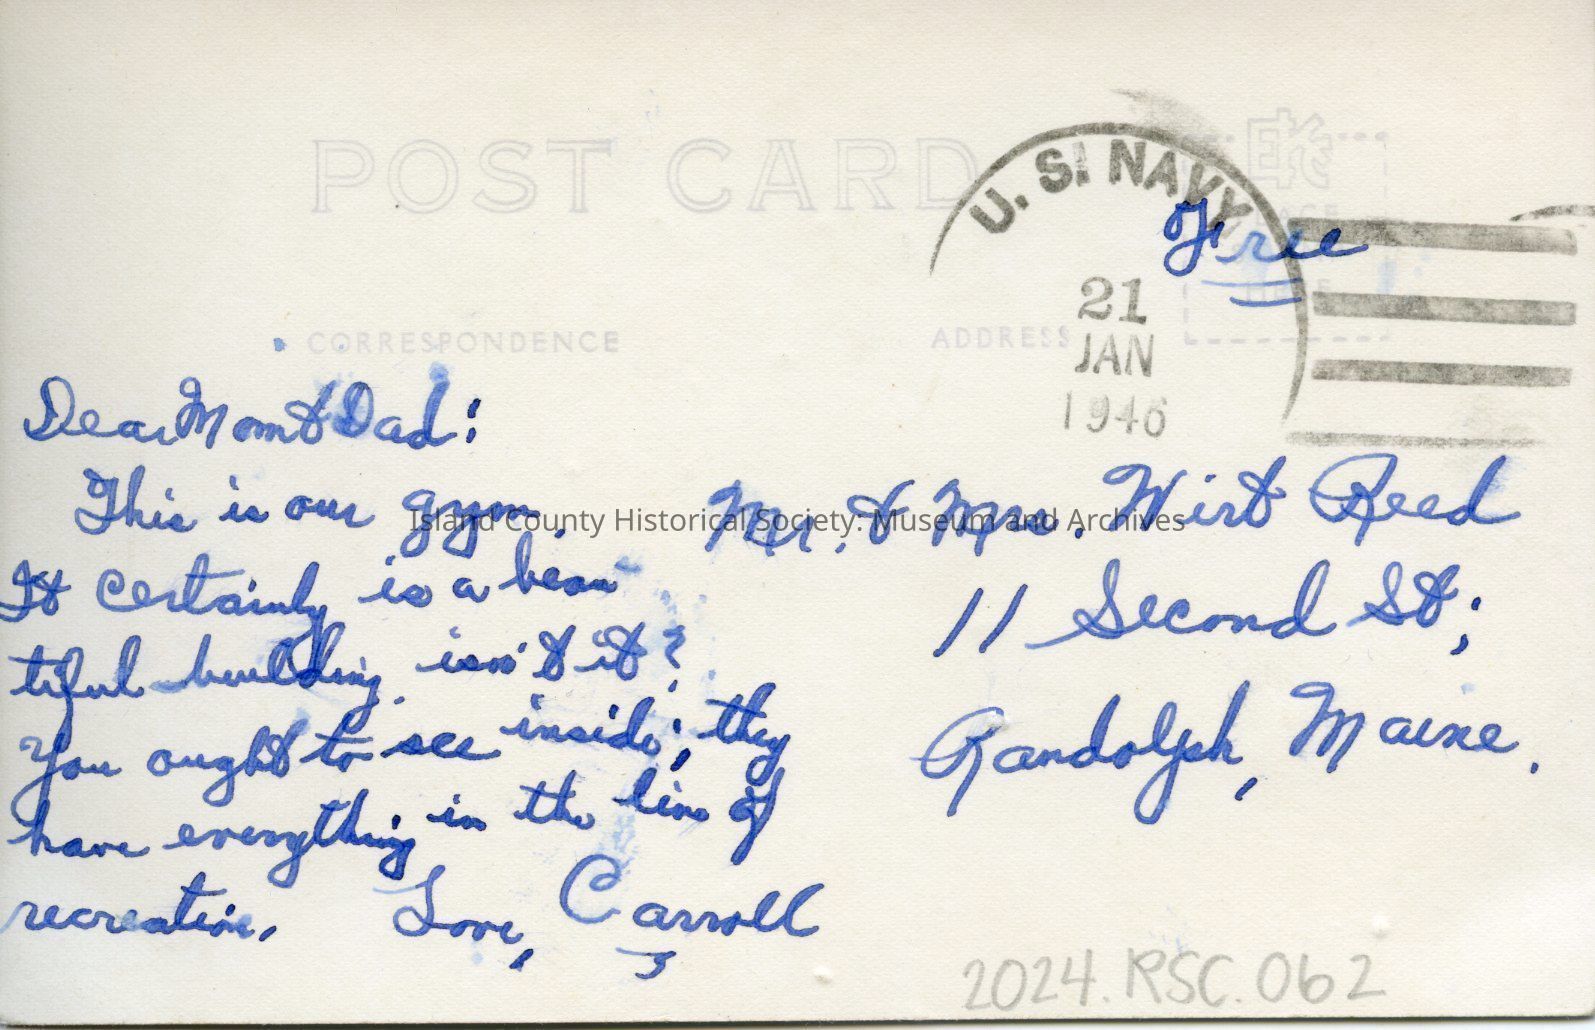 POST CARD
U. S. NAVY
PLACE
HERE
Free
21
JAN
1946
CORRESPONDENCE
ADDRESS
Dear Mom & Dad:
This is our gym.
It certainly is a beau
tiful building isn't it?
You ought to see inside; they
have everything in the line of
recreation. Love, Carroll
Mr. & Mrs. Wirt Reed
11 Second St;
Randolph, Maine.
Island County Historical Society: Museum and Archives
2024.RSC.062